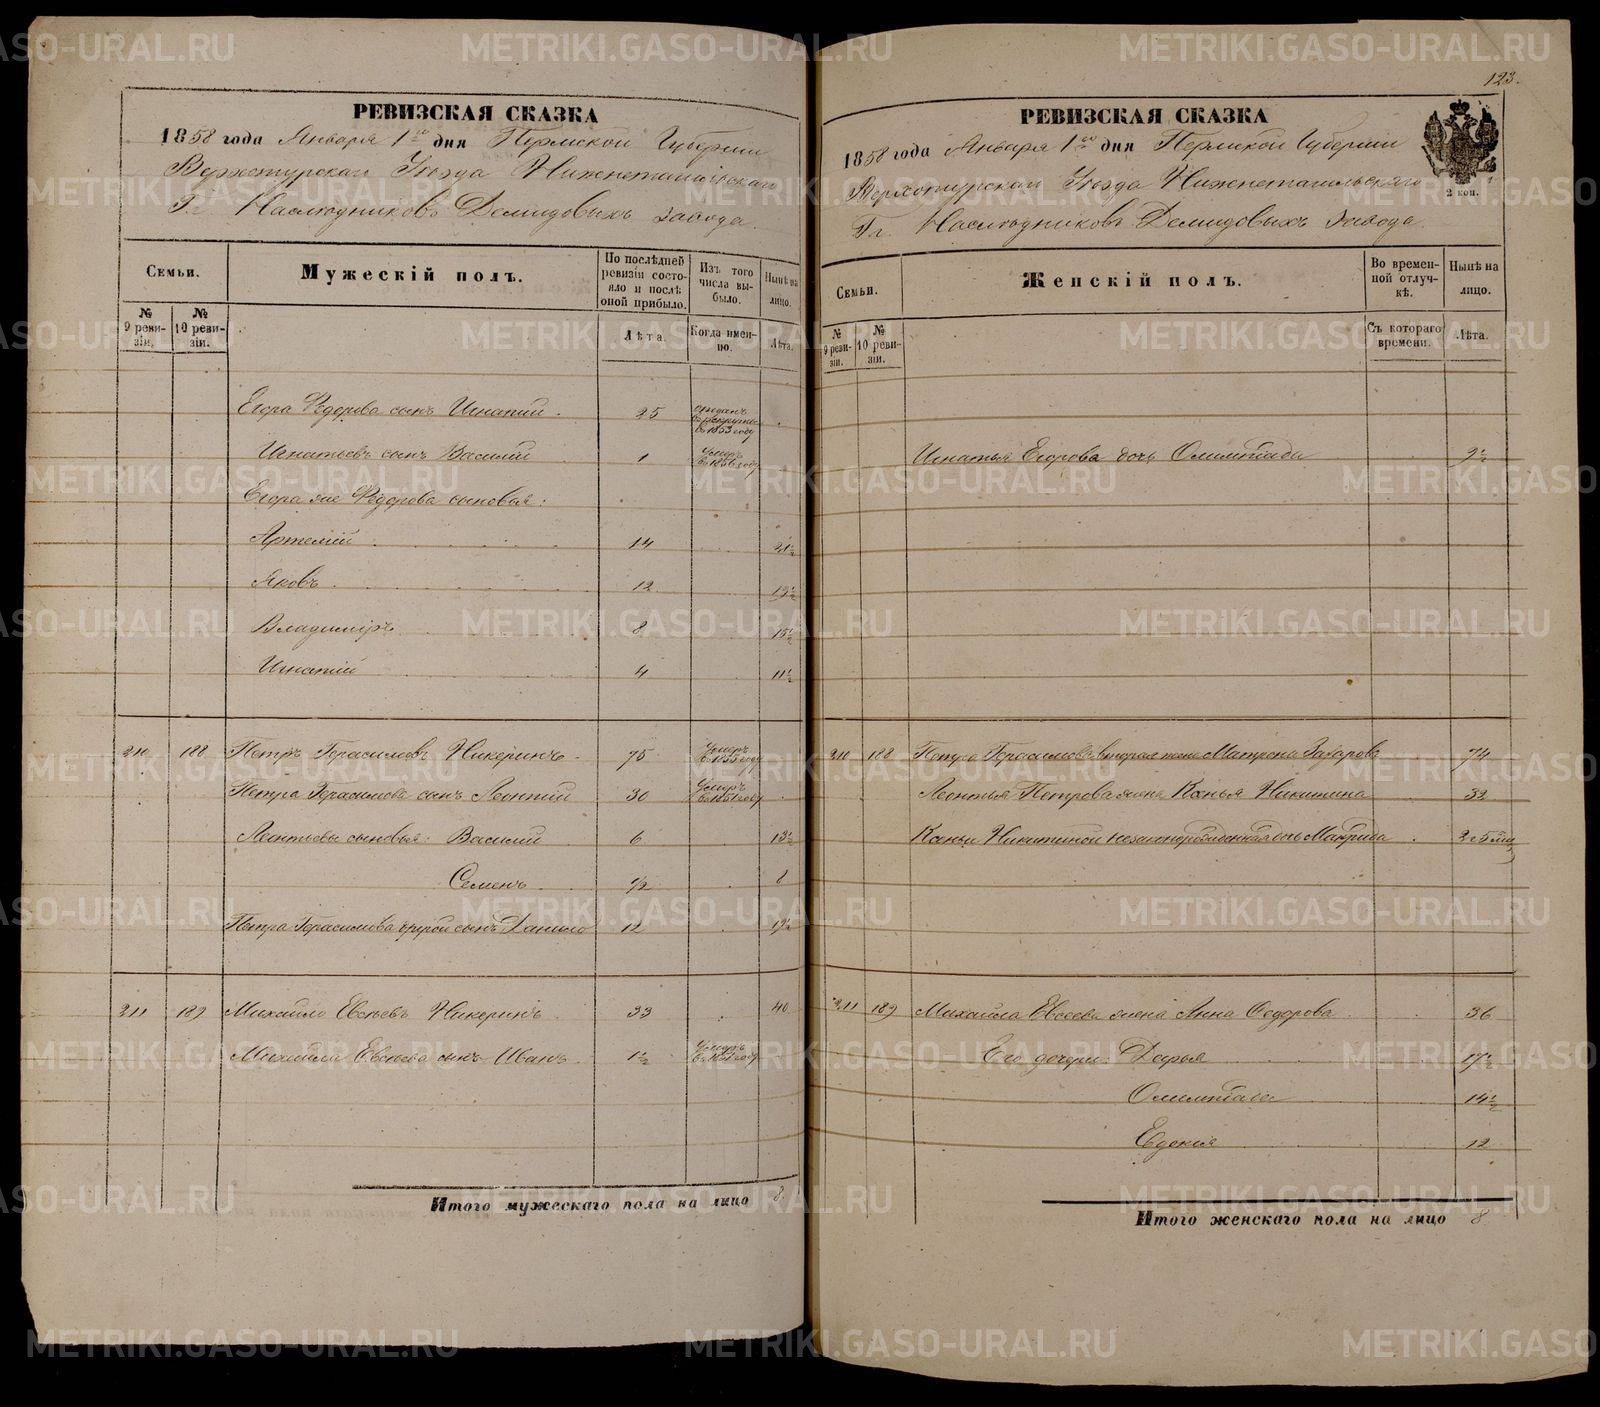 123.
РЕВИЗСКАЯ СКАЗКА
1858 года Января 1го дня Пермской Губернии
Верхотурскаго Уѣзда Нижнетагильскаго
Гг. Наслѣдниковъ Демидовыхъ завода.
Семьи.
Мужескій полъ.
По послѣдней ревизіи состояло и послѣ оной прибыло.
Изъ того числа выбыло.
Нынѣ на лицо.
№ 9 ревизіи.
№ 10 ревизіи.
Лѣта.
Когда именно.
Лѣта.
Егора Ѳедорова сынъ Игнатій 25 отданъ въ рекруты въ 1853 году
Игнатьевъ сынъ Василій 1 Умеръ въ 1856 году
Егора же Ѳедорова сыновья:
Артемій 14 21½
Яковъ 12 19½
Владиміръ 8 15½
Игнатій 4 11½
210 188 Петръ Герасимовъ Никеринъ 75 Умеръ въ 1855 году
Петра Герасимова сынъ Леонтій 30 Умеръ въ 1851 году
Леонтьевы сыновья: Василій 6 13½
Семенъ 1/2 8
Петра Герасимова другой сынъ Данило 12 19½
211 189 Михайло Евсѣевъ Никеринъ 33 40
Михайла Евсѣева сынъ Иванъ 1½ Умеръ въ 1851 году
Итого мужескаго пола на лицо 8
РЕВИЗСКАЯ СКАЗКА
1858 года Января 1го дня Пермской Губерніи
Верхотурскаго Уѣзда Нижнетагильскаго
Гг. Наслѣдниковъ Демидовыхъ завода.
2 коп.
Семьи.
Женскій полъ.
Во временной отлучкѣ.
Нынѣ на лицо.
№ 9 ревизіи.
№ 10 ревизіи.
Съ котораго времени.
Лѣта.
Игнатья Егорова дочь Олимпіада 9½
210 188 Петра Герасимова вторая жена Матрена Захарова 74
Леонтья Петрова жена Ксенья Никитина 32
Ксеньи Никитиной незаконнорожденная дочь Мавра 2 г 5 мѣ
211 189 Михайла Евсеева жена Анна Ѳедорова 36
Его дочери: Дарья 17½
Олимпіада 14½
Евдокия 12
Итого женскаго пола на лицо 8
METRIKI.GASO-URAL.RU